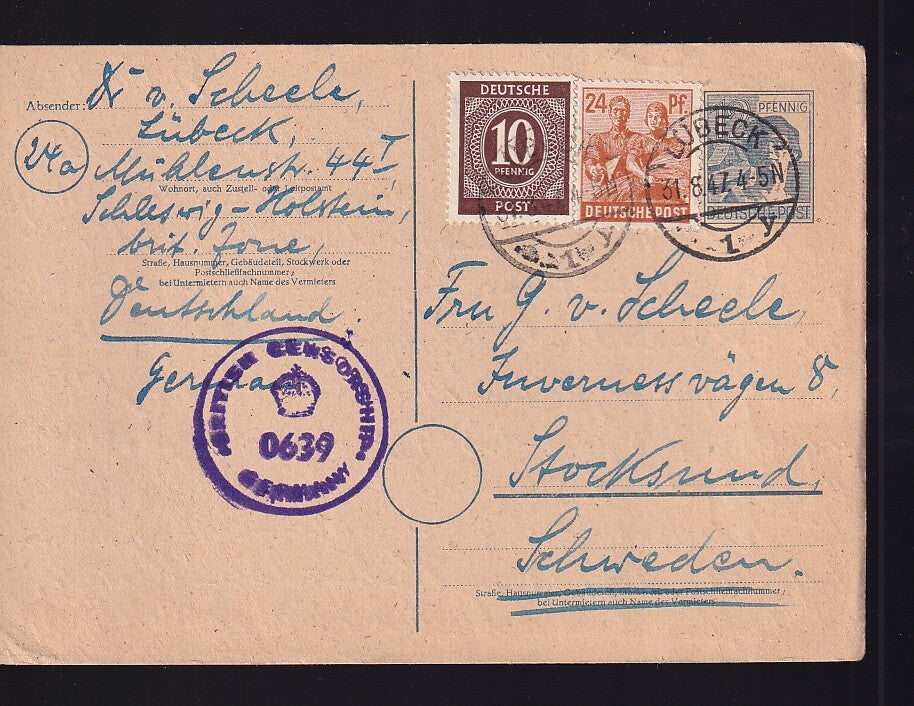 Absender: Dr v. Scheele,
Lübeck,
24a
Mühlenstr. 44 I,
Wohnort, auch Zustell- oder Leitpostamt
Schleswig-Holstein,
brit. Zone,
Straße, Hausnummer, Gebäudeteil, Stockwerk oder
Postschließfachnummer;
bei Untermietern auch Name des Vermieters
Deutschland.
Germany
BRITISH CENSORSHIP
0639
GERMANY
DEUTSCHE
10
PFENNIG
POST
24 Pf
DEUTSCHE POST
PFENNIG
DEUTSCHE POST
LÜBECK 2
31.8.47.4-5N
1 y
1 y
Fru G. v. Scheele,
Invernessvägen 8,
Stocksund,
Schweden.
Straße, Hausnummer, Gebäudeteil, Stockwerk oder Postschließfachnummer;
bei Untermietern auch Name des Vermieters